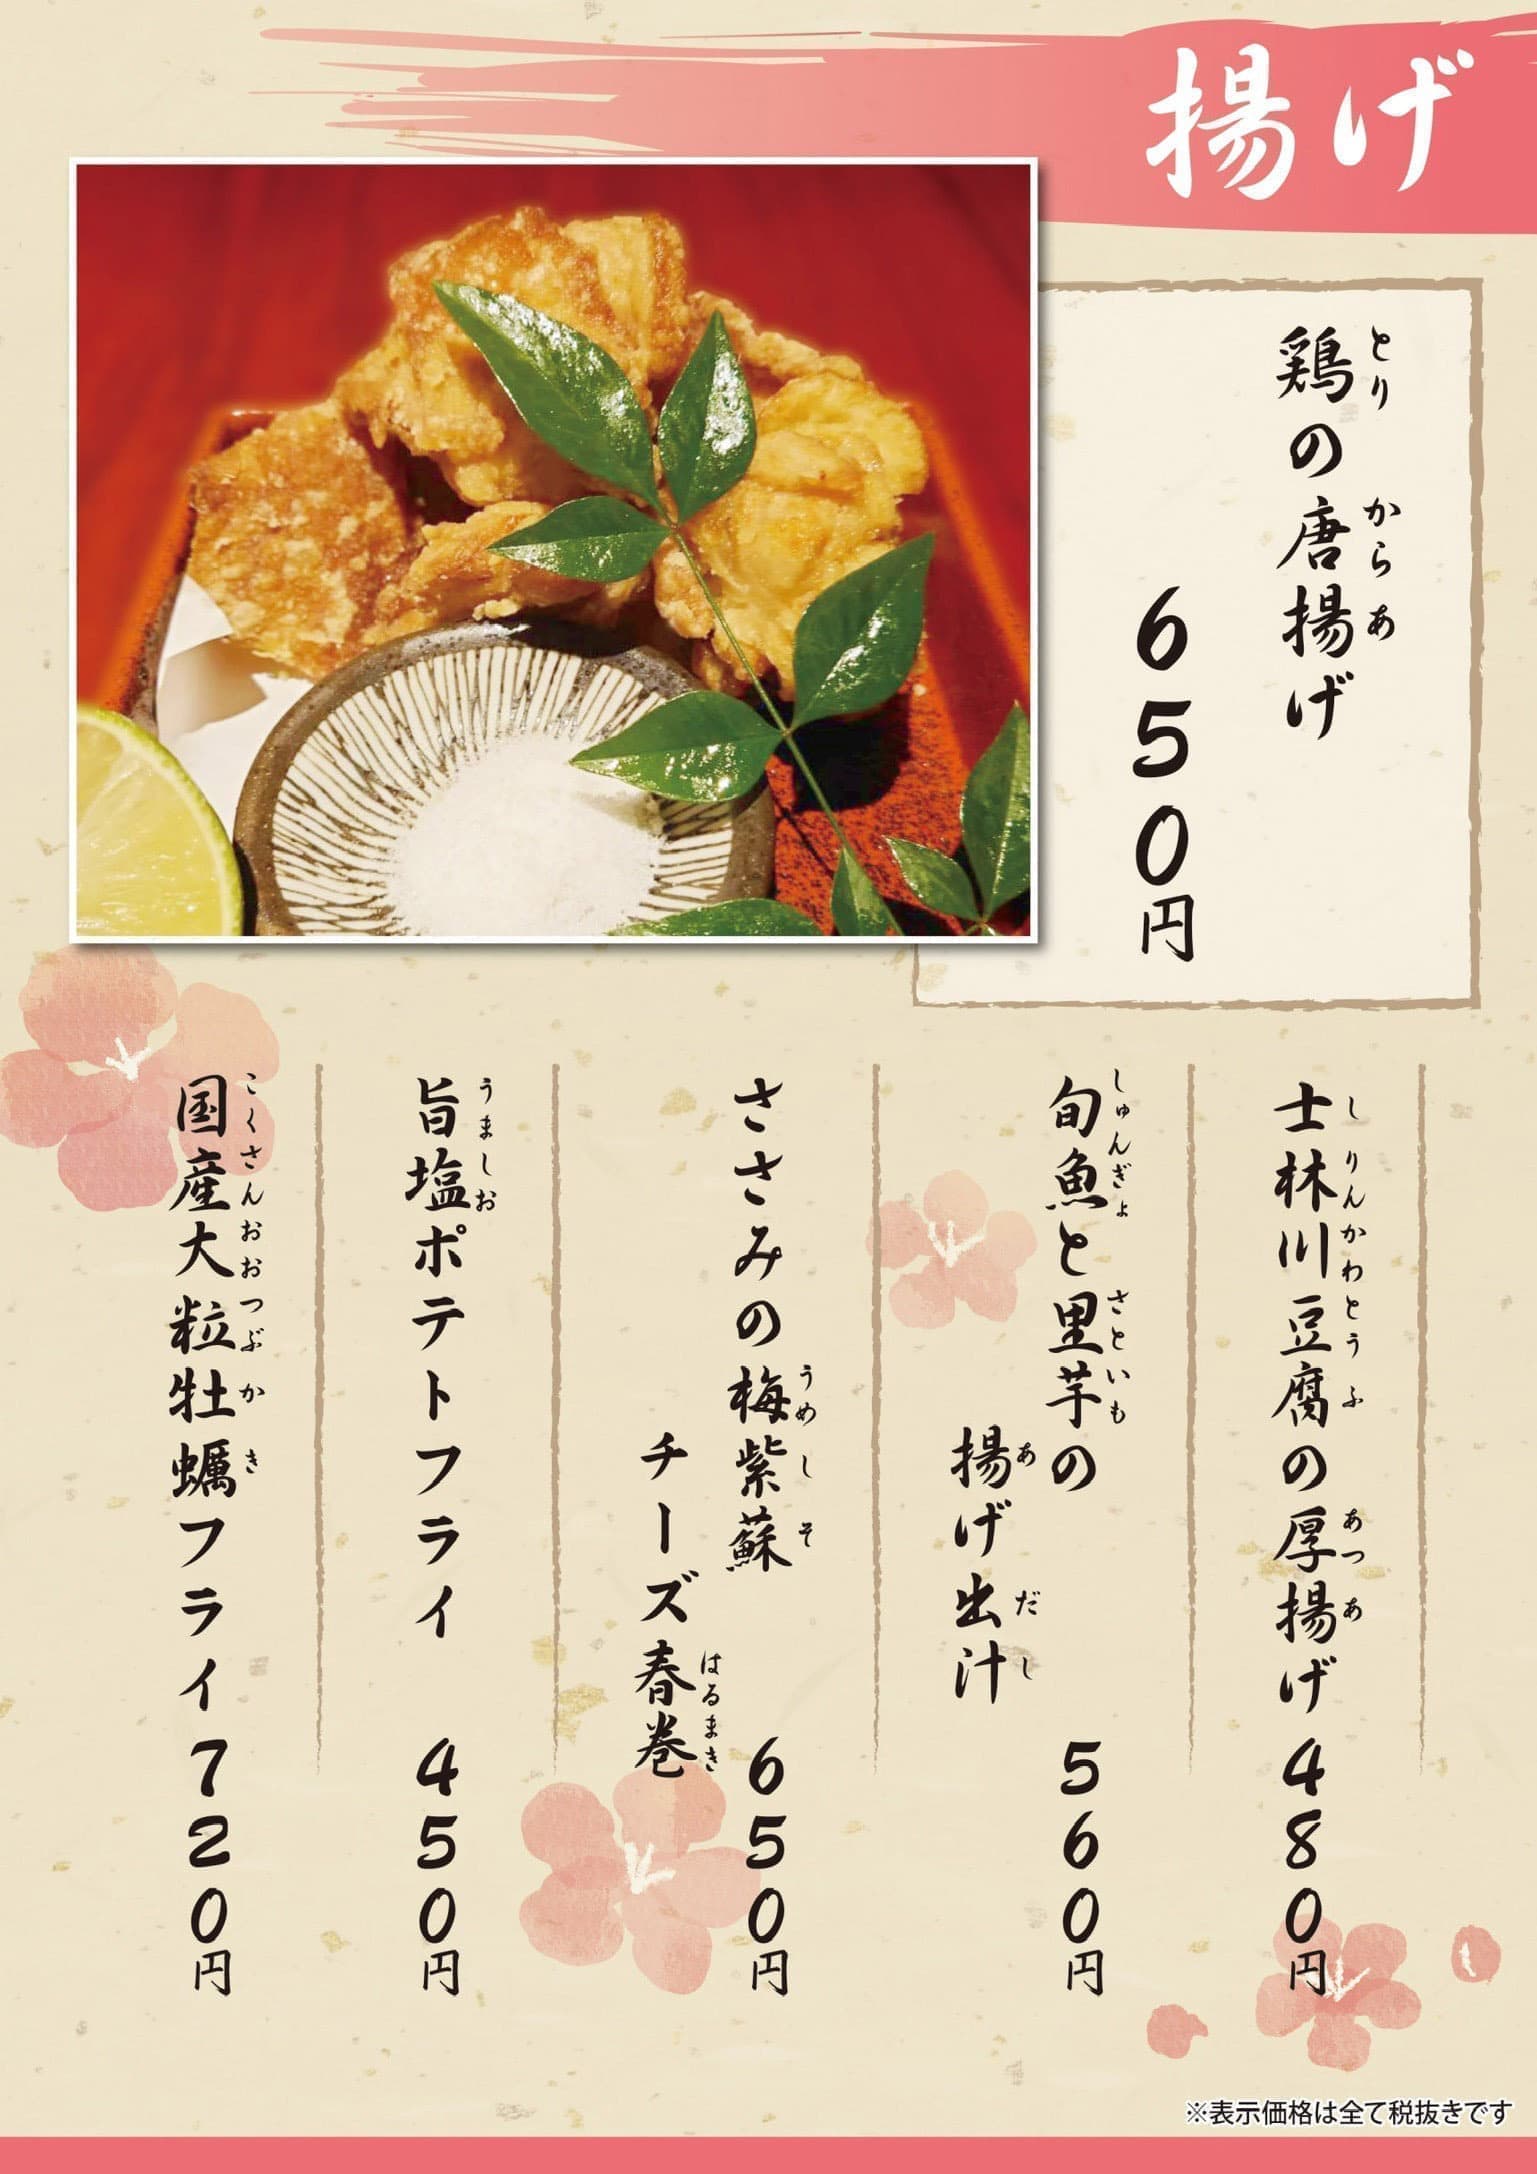 揚げ
鶏の唐揚げ
とり
からあ
650円
士林川豆腐の厚揚げ
しりんかわとうふ
あつあ
480円
旬魚と里芋の
しゅんぎょ
さといも
揚げ出汁
あ
だし
560円
ささみの梅紫蘇
うめしそ
チーズ春巻
はるまき
650円
旨塩ポテトフライ
うましお
450円
国産大粒牡蠣フライ
こくさんおおつぶかき
720円
※表示価格は全て税抜きです